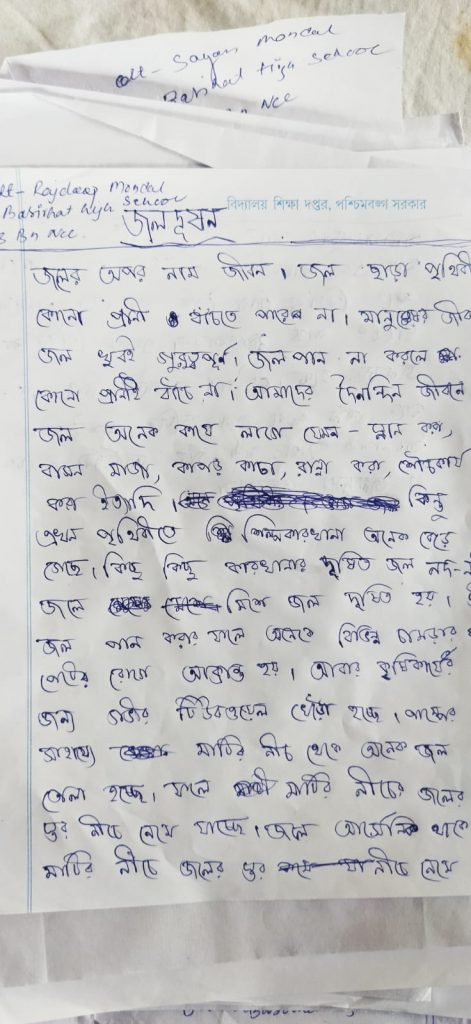 Sayan Mondal
Basirhat High School
Bn NCC
Mondal
Basirhat High School
Bn NCC
বিদ্যালয় শিক্ষা দপ্তর, পশ্চিমবঙ্গ সরকার
জলদূষন
জলের অপর নাম জীবন। জল ছাড়া পৃথিবী
কোনো প্রানী বাঁচতে পারে না। মানুষের জীব
জল খুবই গুরুত্বপূর্ন। জল পান না করলে
কোনো প্রানীই বাঁচে না। আমাদের দৈনন্দিন জীবনে
জল অনেক কাযে লাগে যেমন - স্নান করা,
বাসন মাজা, কাপড় কাচা, রান্না করা, শৌচকার্য
করা ইত্যাদি। কিন্তু
এখন পৃথিবীতে শিল্পকারখানা অনেক বেড়ে
গেছে। কিছু কিছু কারখানার দূষিত জল নদ-ন
জলে মিশে জল দূষিত হয়।
জল পান করার ফলে অনেকে বিভিন্ন চামড়ার
পেটের রোগে আক্রান্ত হয়। আবার কৃষিকার্যের
জন্য গভীর টিউবওয়েল খোঁড়া হচ্ছে। পাম্পের
সাহায্যে মাটির নীচ থেকে অনেক জল
তোলা হচ্ছে। যালে মাটির নীচের জলের
স্তর নীচে নেমে যাচ্ছে। জলে আর্সেনিক থাকে
মাটির নীচে জলের স্তর নীচে নেমে